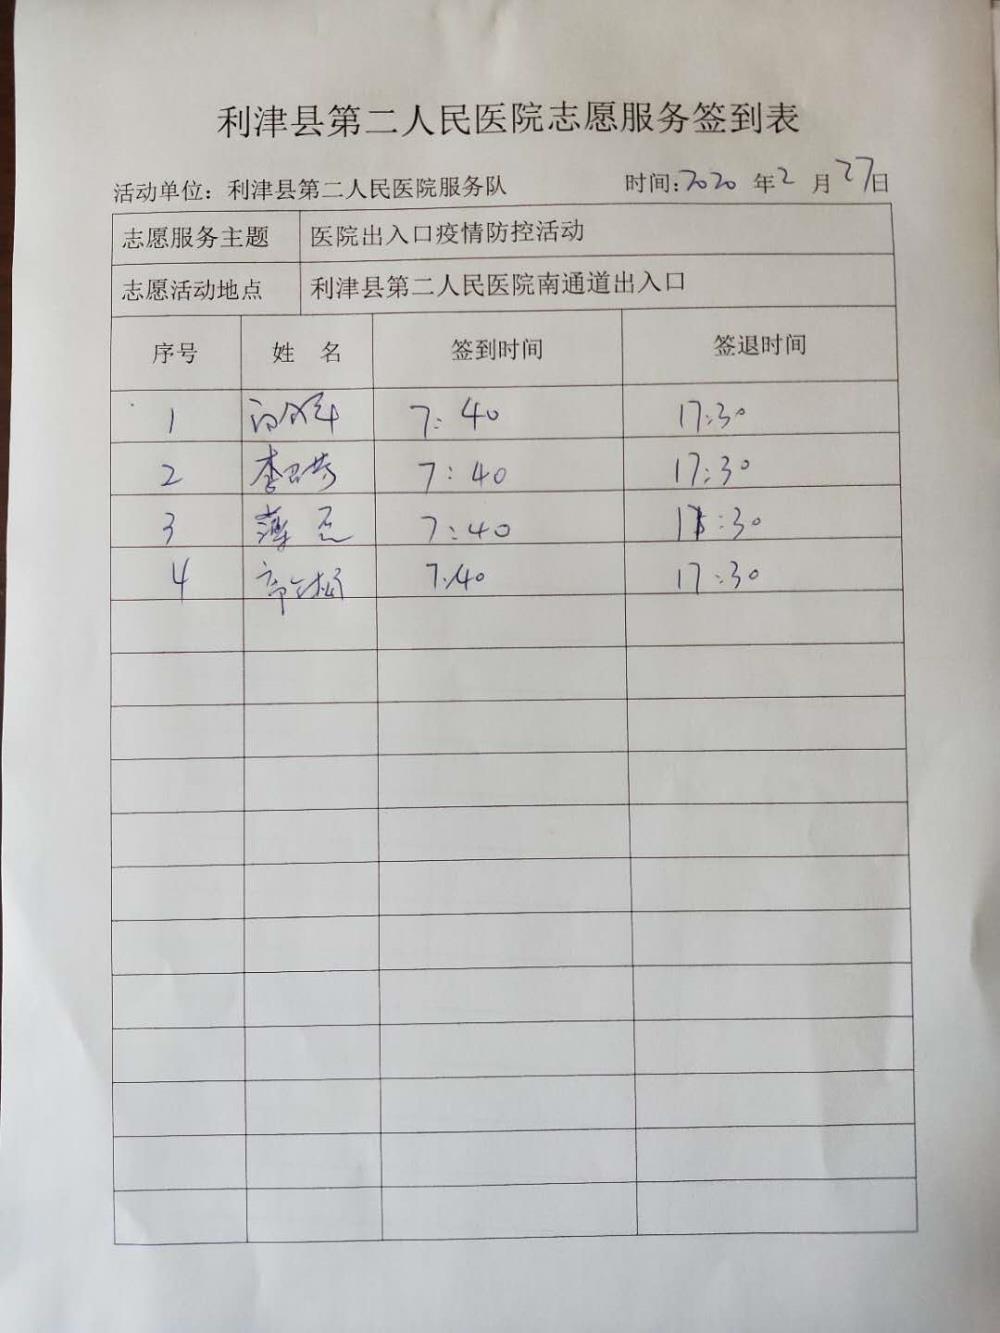 利津县第二人民医院志愿服务签到表
活动单位：利津县第二人民医院服务队 时间：2020 年 2 月 27 日
志愿服务主题 医院出入口疫情防控活动
志愿活动地点 利津县第二人民医院南通道出入口
序号 姓 名 签到时间 签退时间
1 7:40 17:30
2 李 7:40 17:30
3 薄 7:40 17:30
4 7:40 17:30